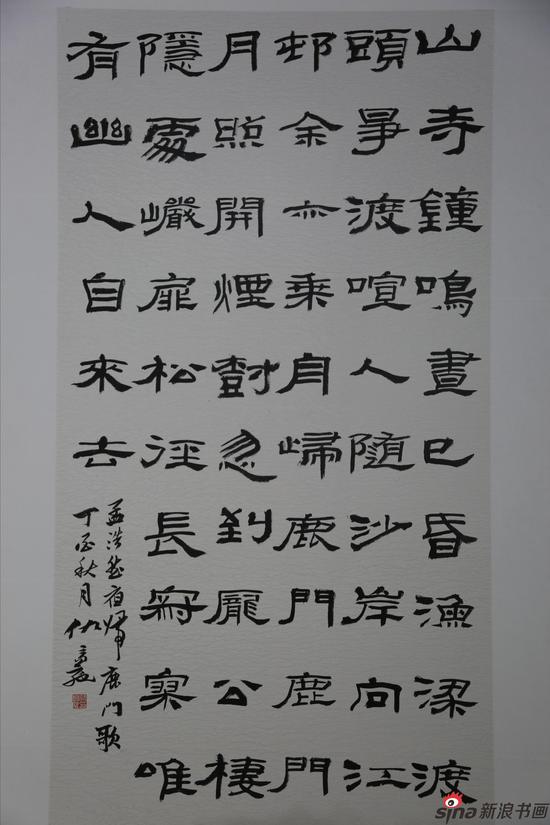 山寺鐘鳴晝已昏漁梁渡
頭爭渡喧人隨沙岸向江
邨余亦乘舟歸鹿門鹿門
月照開煙樹忽到龐公棲
隱處巖扉松徑長寂寞唯
有幽人自來去
孟浩然夜歸鹿門歌
丁酉秋月
sina新浪书画